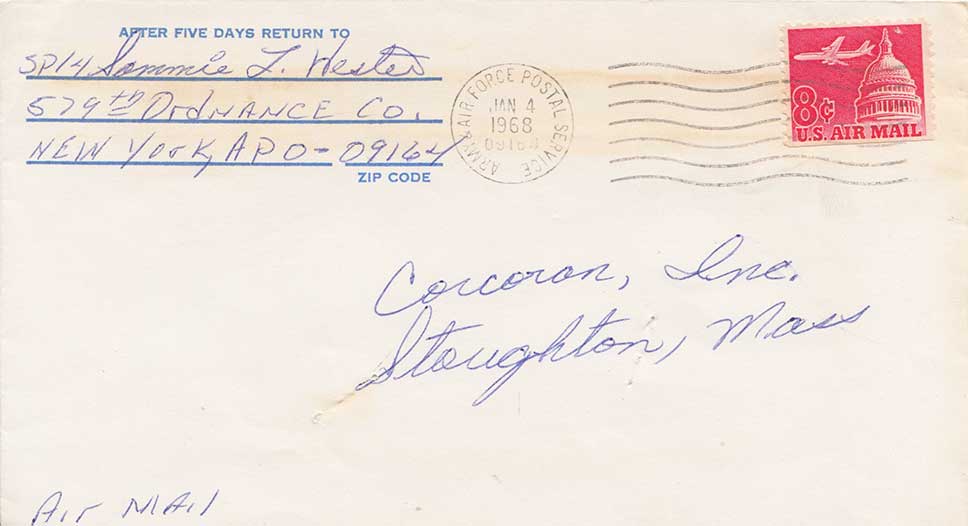 AFTER FIVE DAYS RETURN TO
SP/4 Sammie L. Hester
579th OrdNANCE Co.
NEW York, APO - 09164
ZIP CODE
ARMY & AIR FORCE POSTAL SERVICE
JAN 4
1968
09164
8¢
U.S. AIR MAIL
Corcoran, Inc.
Stoughton, Mass
Air MAil